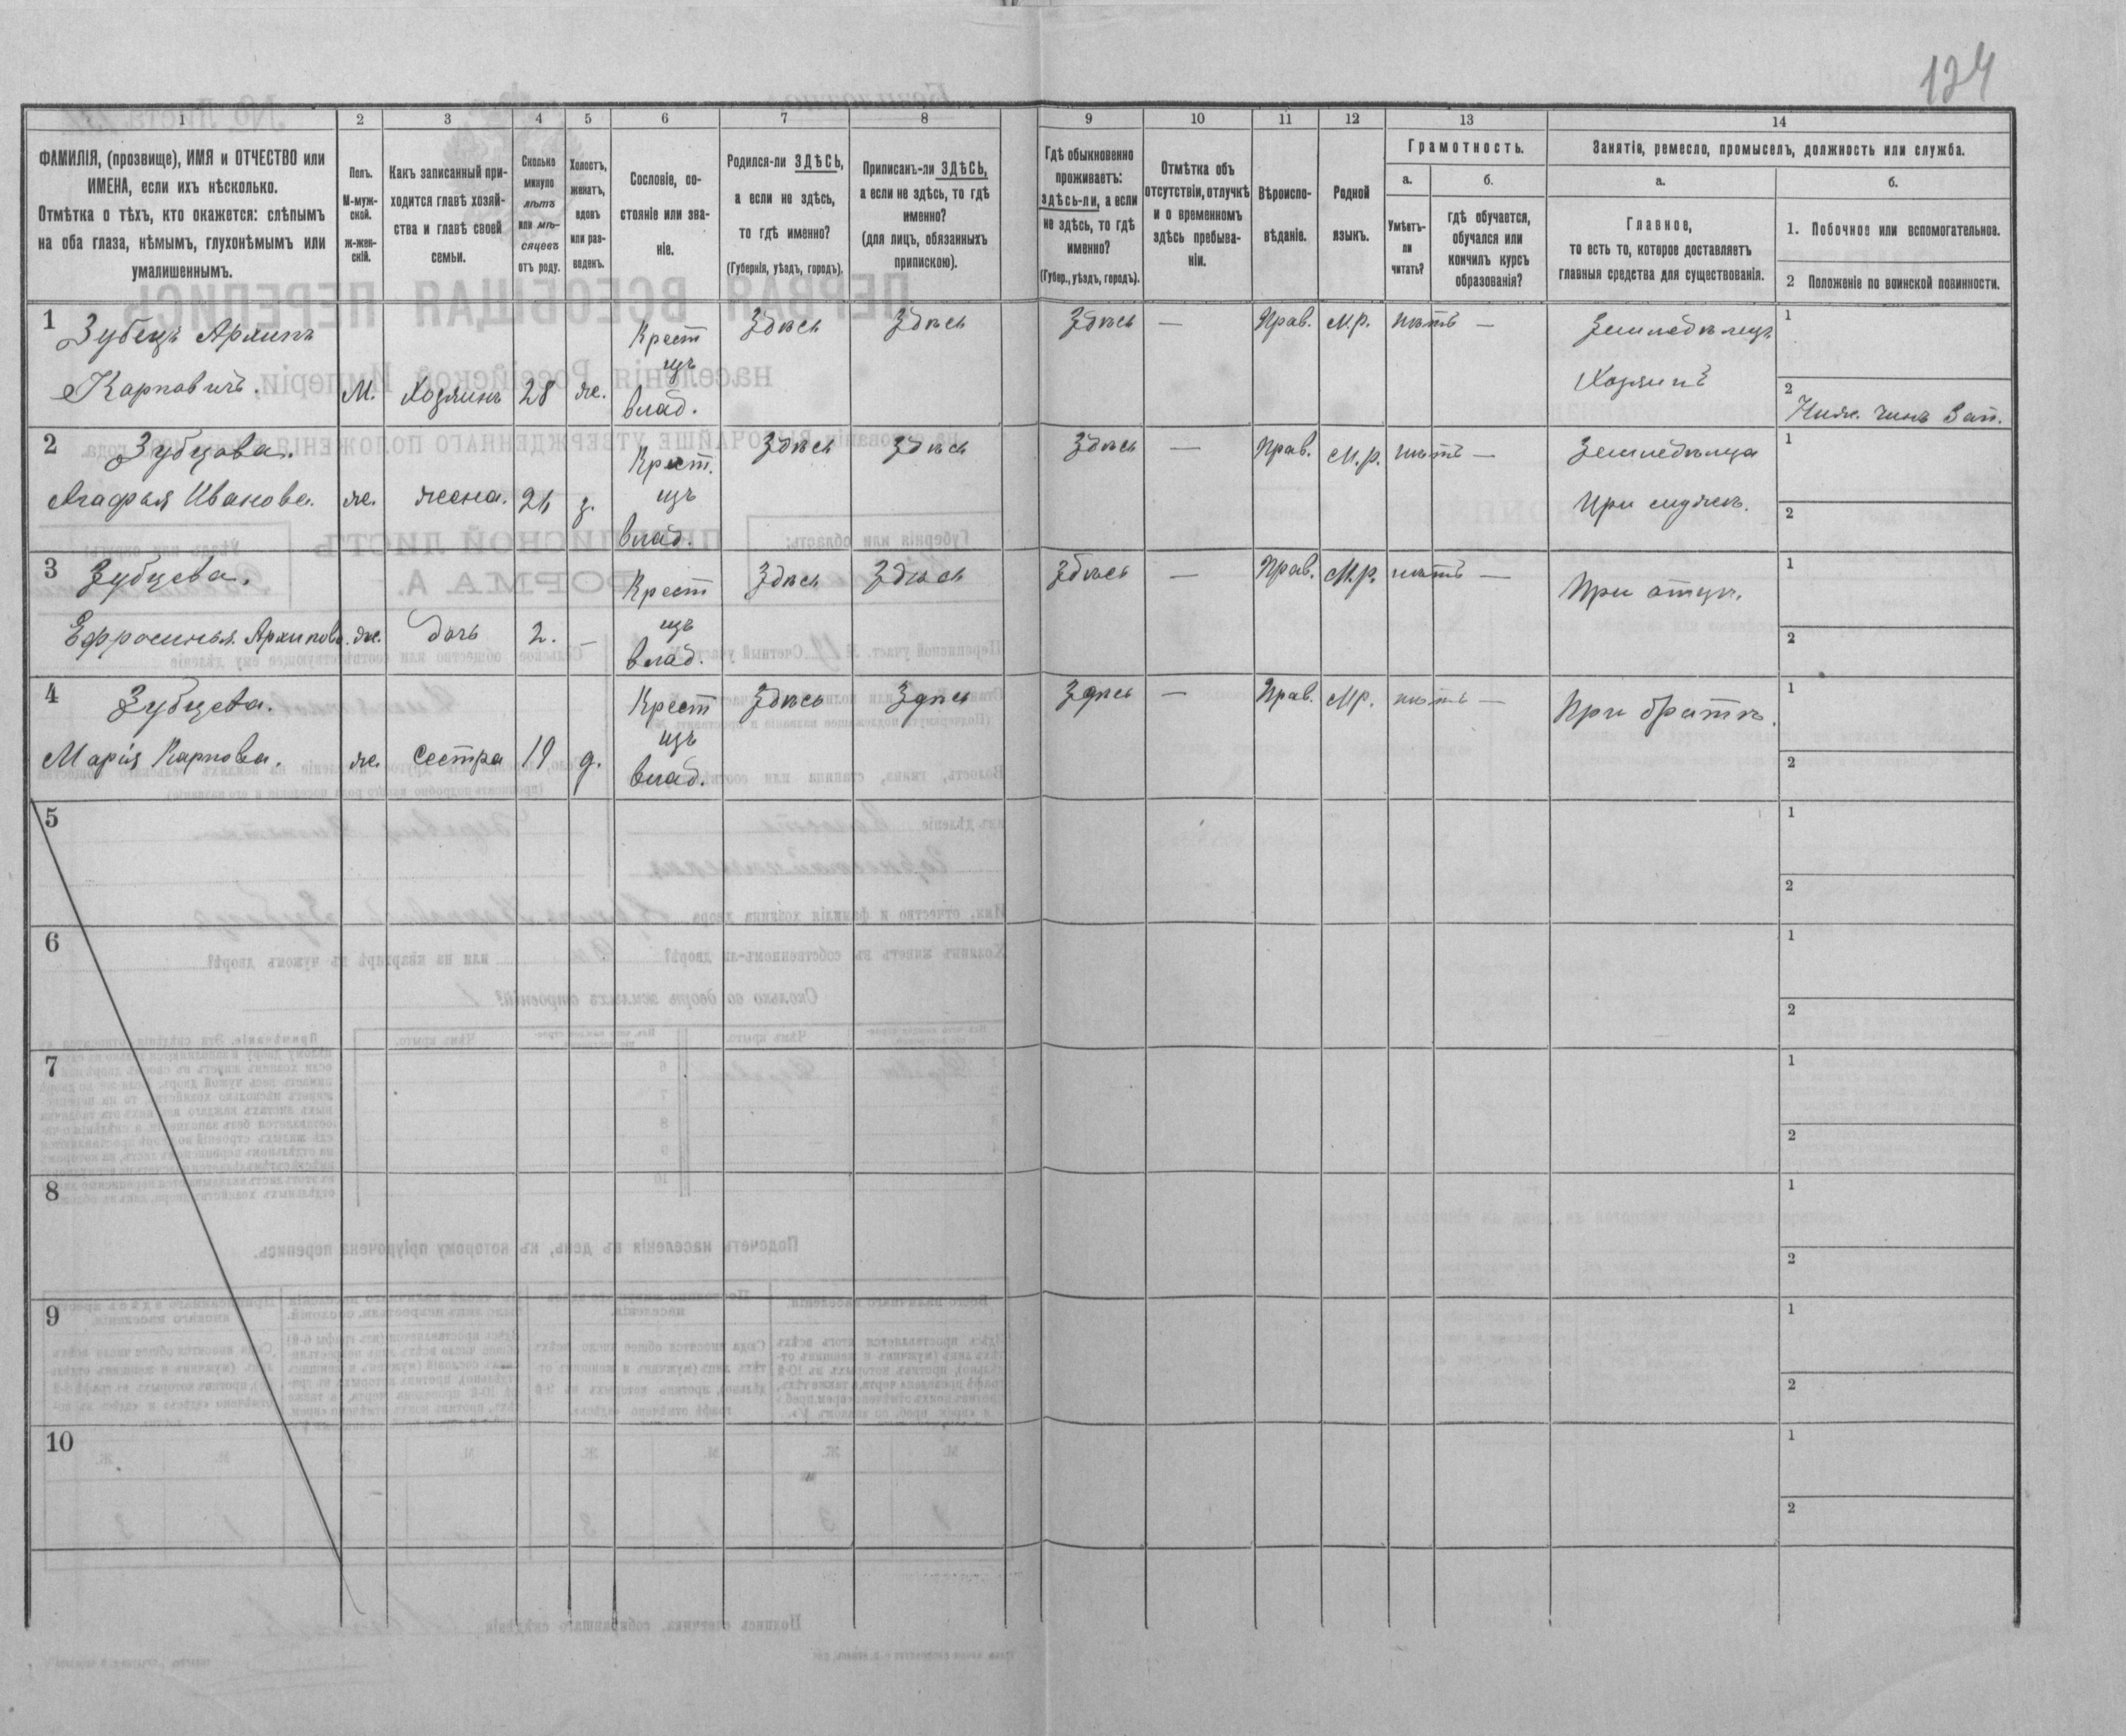 124
1 2 3 4 5 6 7 8 9 10 11 12 13 14
ФАМИЛІЯ, (прозвище), ИМЯ и ОТЧЕСТВО или
ИМЕНА, если ихъ нѣсколько.
Отмѣтка о тѣхъ, кто окажется: слѣпымъ
на оба глаза, нѣмымъ, глухонѣмымъ или
умалишеннымъ.
Полъ.
М-муж-
ской.
ж-жен-
скій.
Какъ записанный при-
ходится главѣ хозяй-
ства и главѣ своей
семьи.
Сколько
минуло
лѣтъ
или мѣ-
сяцевъ
отъ роду.
Холостъ,
женатъ,
вдовъ
или раз-
веденъ.
Сословіе, со-
стояніе или зва-
ніе.
Родился-ли ЗДѢСЬ,
а если не здѣсь,
то гдѣ именно?
(Губернія, уѣздъ, городъ).
Приписанъ-ли ЗДѢСЬ,
а если не здѣсь, то гдѣ
именно?
(для лицъ, обязанныхъ
припискою).
Гдѣ обыкновенно
проживаетъ:
здѣсь-ли, а если
не здѣсь, то гдѣ
именно?
(Губер., уѣздъ, городъ).
Отмѣтка объ
отсутствіи, отлучкѣ
и о временномъ
здѣсь пребыва-
ніи.
Вѣроиспо-
вѣданіе.
Родной
языкъ.
Грамотность.
а.
Умѣетъ-
ли
читать?
б.
гдѣ обучается,
обучался или
кончилъ курсъ
образованія?
Занятіе, ремесло, промыселъ, должность или служба.
а.
Главное,
то есть то, которое доставляетъ
главныя средства для существованія.
б.
1. Побочное или вспомогательное.
2 Положеніе по воинской повинности.
1 Зубецъ Архипъ Крест Здѣсь Здѣсь Здѣсь — Прав. М.р. нѣтъ — Земледѣлецъ 1
цъ
Карповичъ. М. Хозяинъ 28 ж. влад. Хозяинъ 2
Ниж. чинъ Зап.
2 Зубцова. Крест. Здѣсь Здѣсь Здѣсь — Прав. М.р. нѣтъ — Земледѣлица 1
Агафья Иванова. ж. жена. з. цъ При мужѣ. 2
влад.
3 Зубцева. Крест Здѣсь Здѣсь Здѣсь — Прав. М.р. нѣтъ — При отцѣ. 1
Ефросинья Архипова. ж. дочь 2. — цъ 2
влад.
4 Зубцева. Крест Здѣсь Здѣсь Здѣсь — Прав. М.р. нѣтъ — При братѣ. 1
цъ
Марія Карпова. ж. сестра 19 д. влад. 2
5 1
2
6 1
2
7 1
2
8 1
2
9 1
2
10 1
2